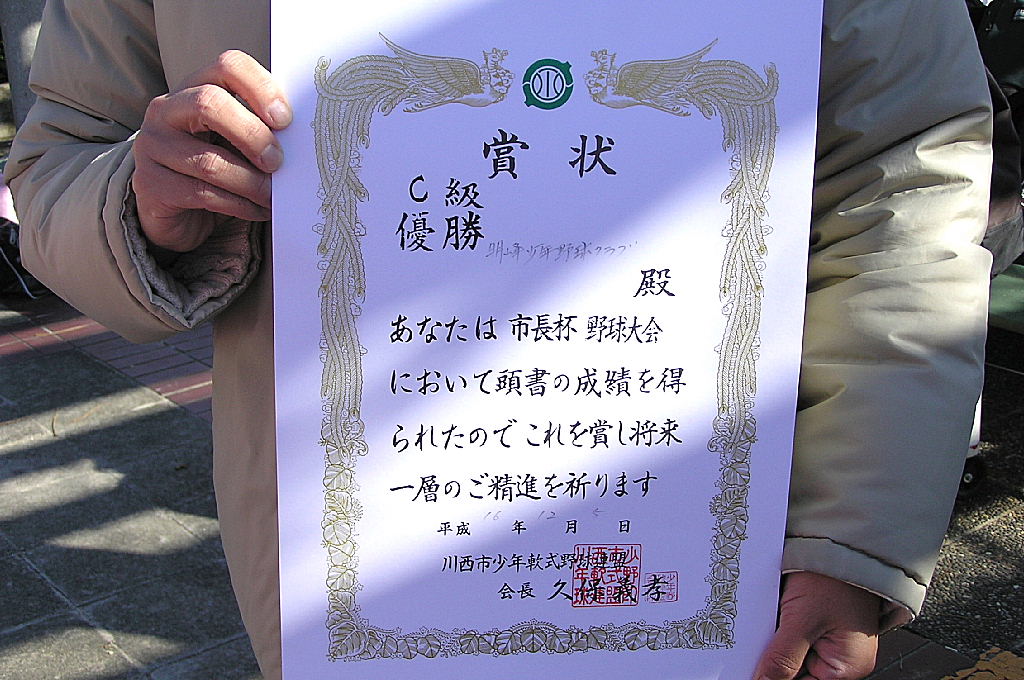 賞状
C級
優勝
少年野球クラブ
殿
あなたは市長杯野球大会
において頭書の成績を得
られたのでこれを賞し将来
一層のご精進を祈ります
平成16年12月5日
川西市少年軟式野球連盟
会長 久保義孝